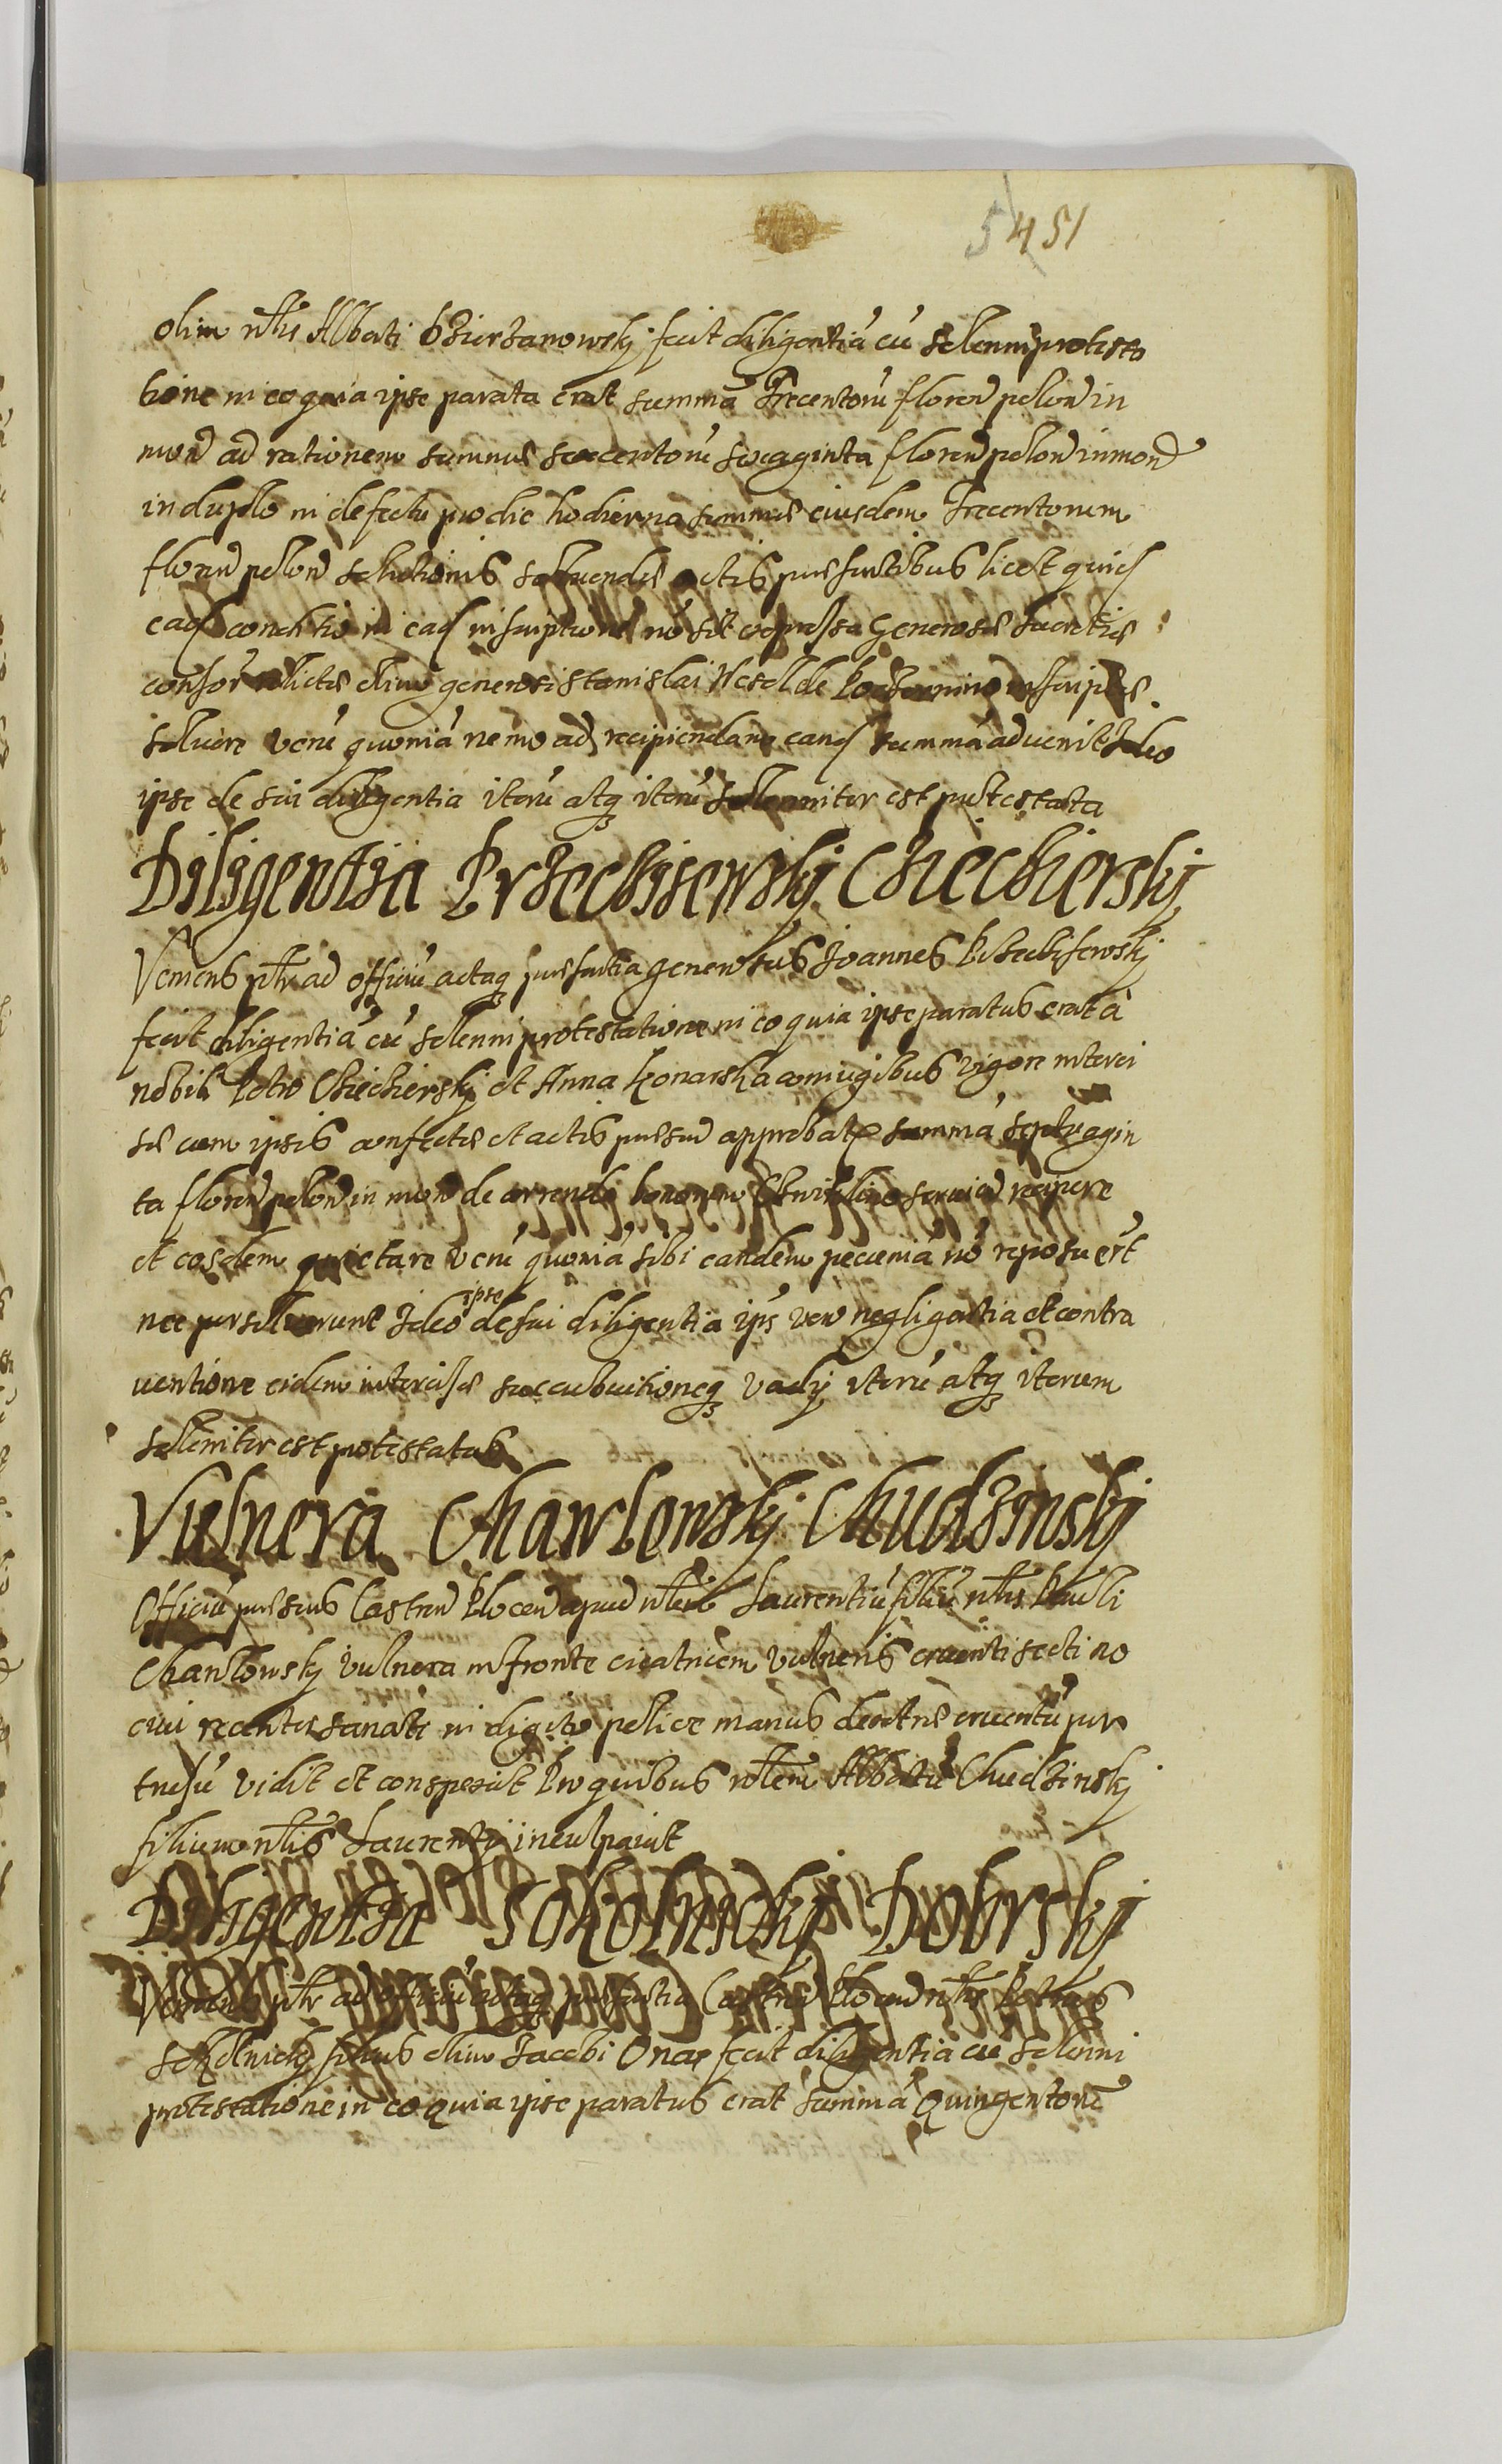 451
olim nblis Albāti Dzierzanowskj fecit diligentiā cū solenni protesta
tione in eo quia ipse parata erat summā Trecentorū floren polon in
mon ad rationem summae sexcentorū sexaginta floren polon in mon
in duplo in defectu pro die hodierna summae eiusdem Trecentorum
floren polon solutionis actis praesentibus licet
conditio in inscriptione nō sit expressa Generosae
consor relictae olim generosi Stanislai Wesel de inscriptae
soluere verū quoniā nemo ad recipiendam eand summā advenit Ideo
ipse de sui diligentia iterū atq iterū solenniter est protestata
Diligentia Przeciszewskj Chiechierskj
Veniens pntr ad officiū actaq praesentia generosus Joannes Przeciszewskj
fecit diligentiā cū solenni protestatione in eo quia ipse paratus erat à
nobil Petro Chiechierskj et Anna Konarska coniugibus vigore interci
sae cum ipsis confectae et actis praesen approbatae summā septuagin
ta floren polon in mon de arrenda bonorum recipere
et eosdem quietare verū quoniā sibi eandem pecuniā nō reposuert
nec persoluerunt Ideo ipse de sui diligentia ips vero negligentia et contra
uentione eidem intercisae succubuitioneq vadij iterū atq iterum
solleniter est protestatus
Vulnera Chawlowskj Chudzinskj
Officiū praesens Castren Plocen apud nblem Laurentiū filiū nblis Pauli
Chawlowskj vulnera in fronte cicatricem vulneris cruenti secti no
ciui recenter sanati in digito police manus dextrae cruentū per
tusū vidit et conspexit Pro quibus nblem Albertū Chudzinskj
filium nblis Laurentij inculpauit
Diligentia Sokolnickj Dobrskj
Veniens pntr ad officiū actaq praesentia Castren Plocen nblis Petrus
Sokolnickj filius olim Jacobi fecit diligentiā cū solenni
protestatione in eo quia ipse paratus erat summā Quingentorū